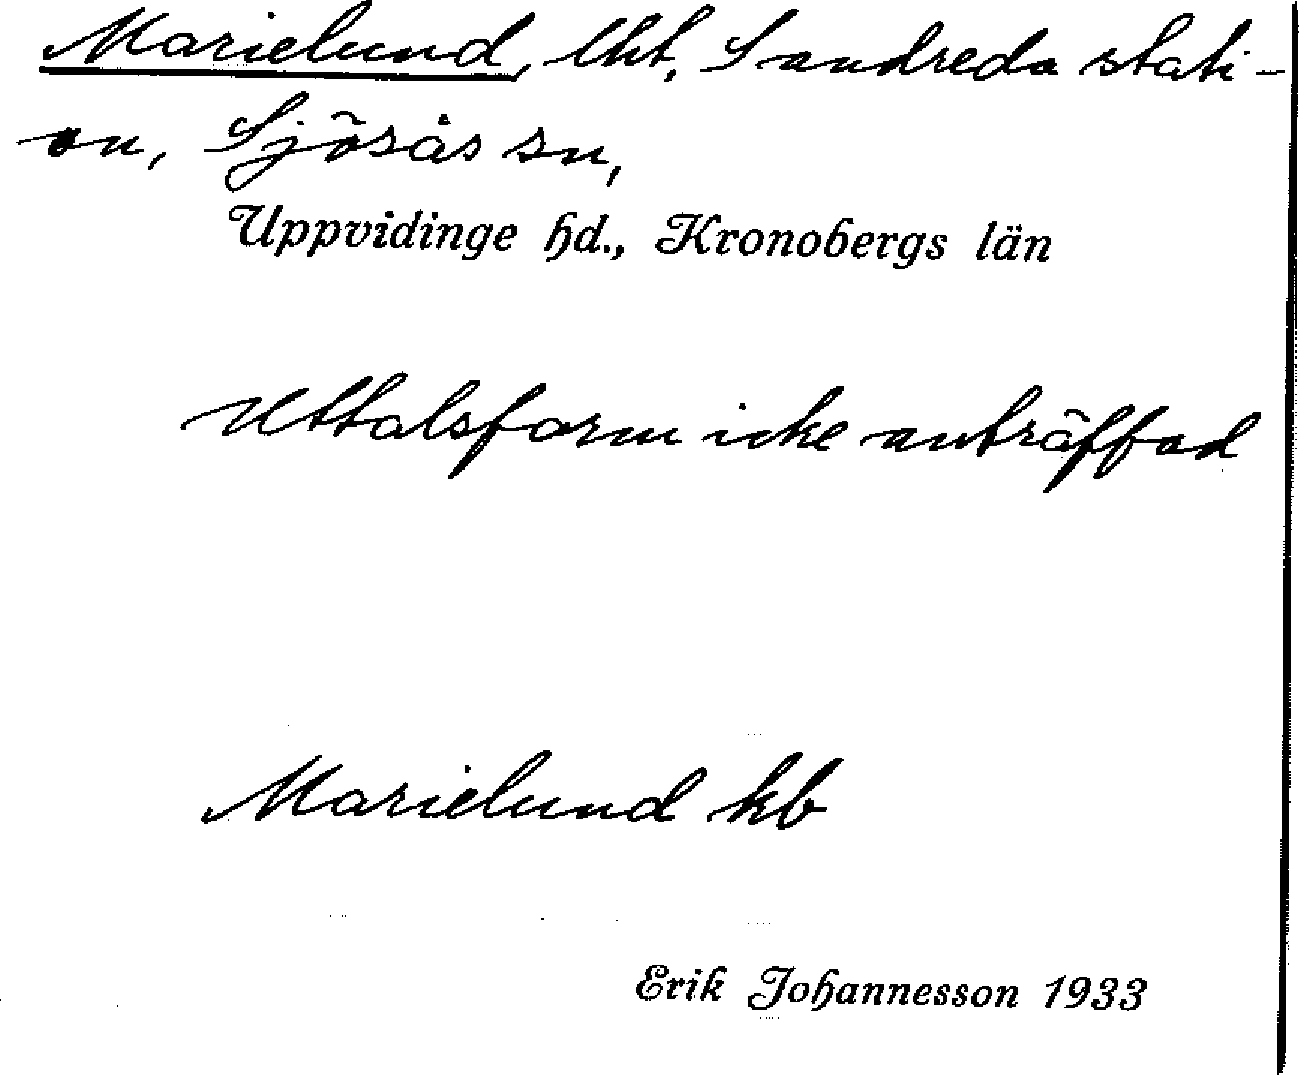 Marielund, lht, Sandreda stati-
on, Sjösås sn,
Uppvidinge hd., Kronobergs län
Uttalsform icke anträffad
Marielund kb
Erik Johannesson 1933